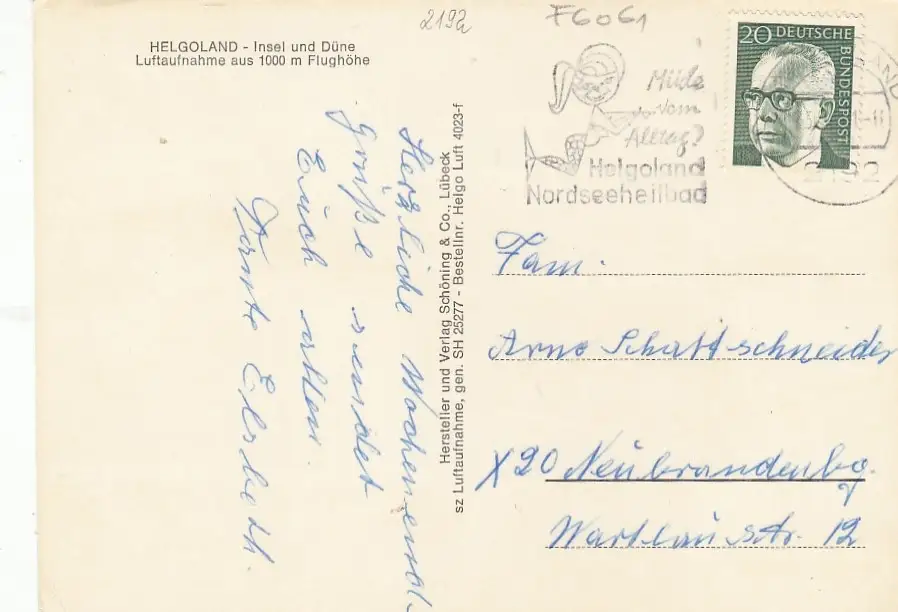 2192
F6061
HELGOLAND - Insel und Düne
Luftaufnahme aus 1000 m Flughöhe
Müde
vom
Alltag?
Helgoland
Nordseeheilbad
20 DEUTSCHE
BUNDESPOST
2192
Herzliche Wochenend-
grüße sendet
Euch allen
Tante Elsbeth.
Hersteller und Verlag Schöning & Co., Lübeck
sz Luftaufnahme, gen. SH 25277 - Bestellnr. Helgo Luft 4023-f
Fam.
Arno Schattschneider
X20 Neubrandenbg.
Wartlaustr. 12